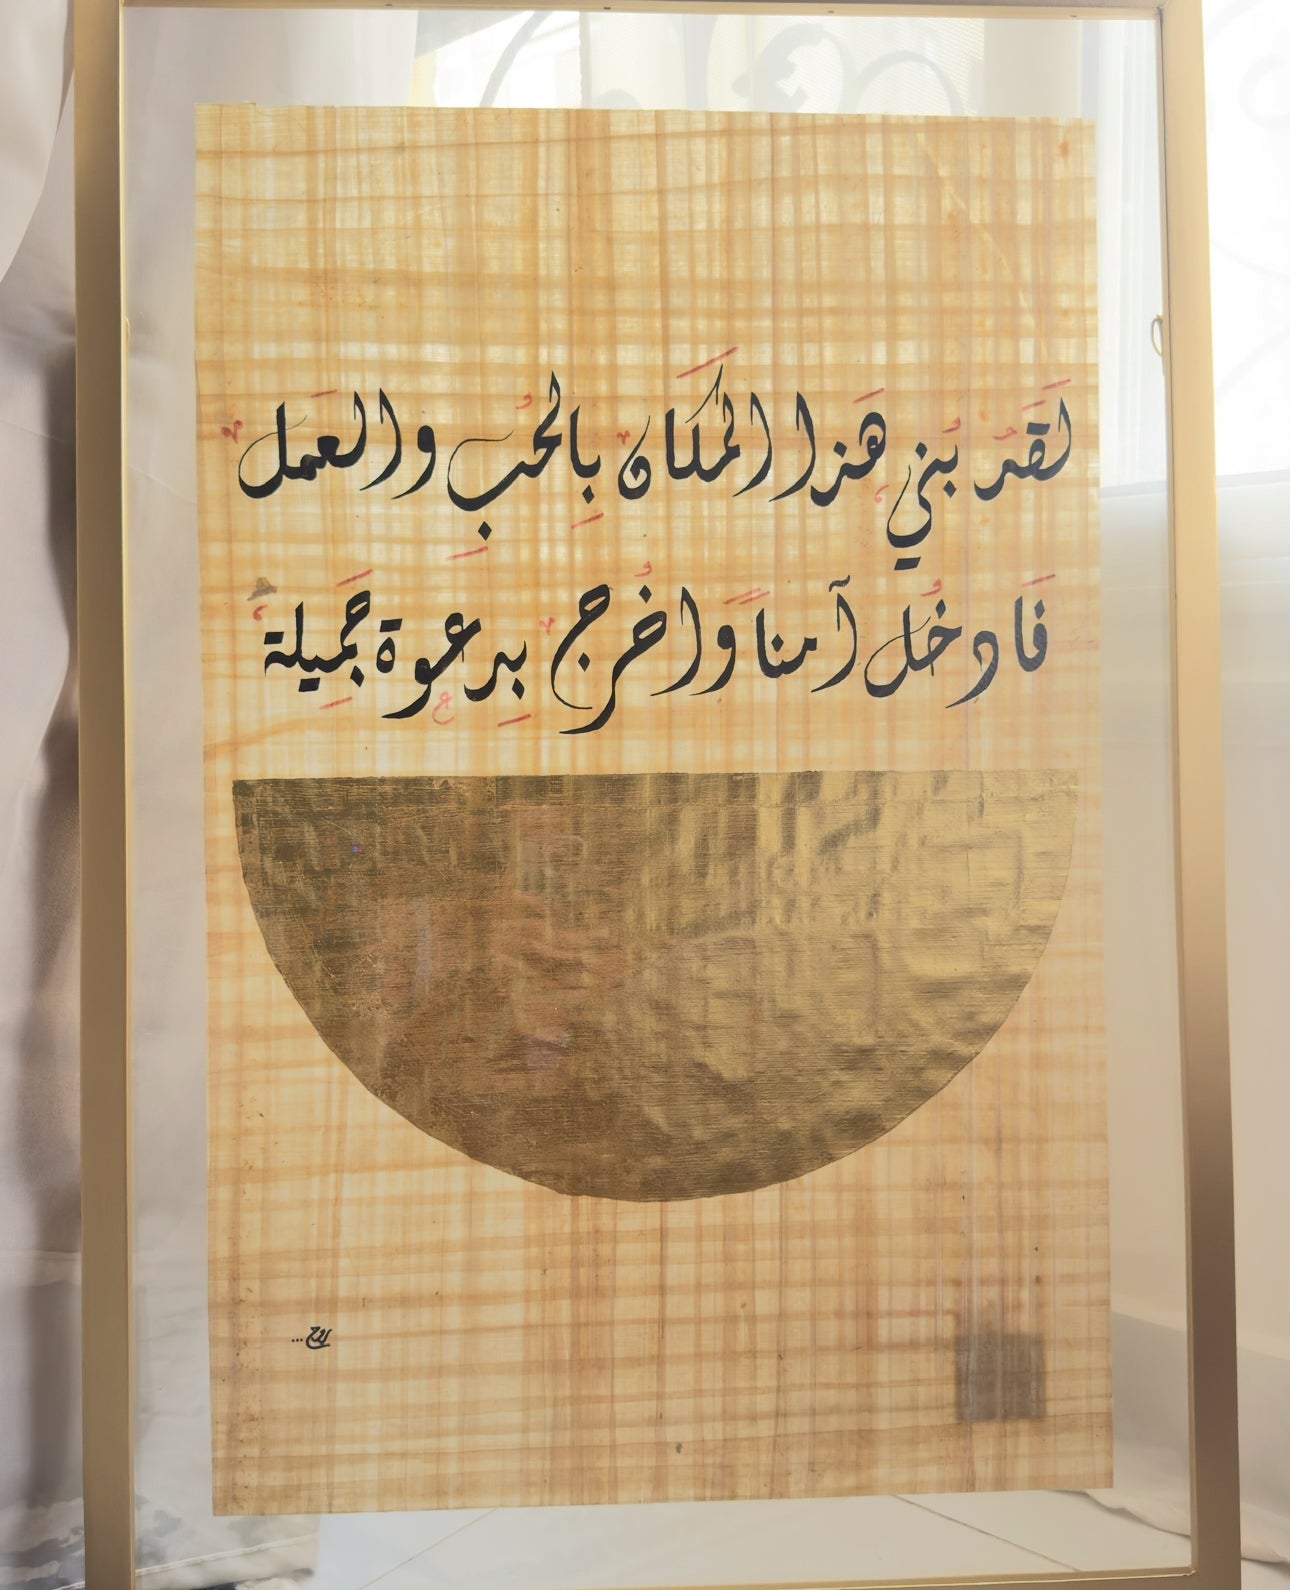 لَقَدُ بُني هَذا المَكَان بِالحُبِ والعَمل
فَادخُل آمناً وَاخُرج بِدعوة جَمِيلة